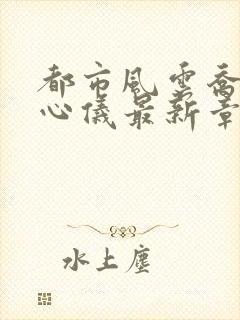 都市風雲喬
心儀最新章
水上塵